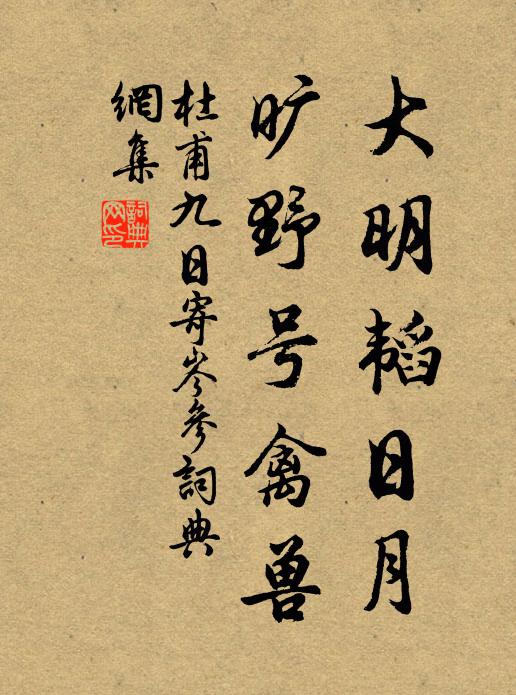 大明韬日月
旷野号禽兽
杜甫九日寄岑参詞典
網集
詞典
网印